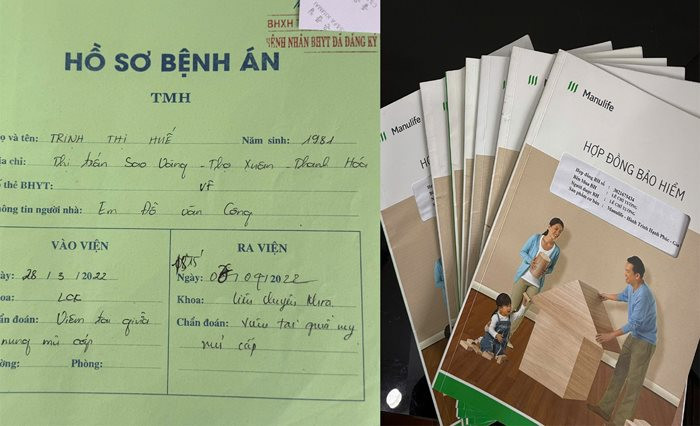 BHXH
BỆNH NHÂN BHYT ĐÃ ĐĂNG KÝ
HỒ SƠ BỆNH ÁN
TMH
ọ và tên: TRỊNH THỊ HUẾ Năm sinh: 1981
ịa chỉ: Thị trấn Sao Vàng - Thọ Xuân - Thanh Hóa
ố thẻ BHYT: Vê
ông tin người nhà: Em Đỗ Văn Công
VÀO VIỆN
gày: 28 / 3 / 2022
hoa: LCK
hẩn đoán: Viêm tai giữa
nung mủ cấp
ường: Phòng:
RA VIỆN
Ngày: /04/2022
Khoa:
Chẩn đoán: Viêm tai giữa
mủ cấp
Manulife
Manulife
HỢP ĐỒNG BẢO HIỂM
Hợp đồng BH số : 2922475324
Bên Mua BH : LÊ CHÍ CƯỜNG
Người được BH : LÊ CHÍ CƯỜNG
Sản phẩm cơ bản : Manulife - Hành Trình Hạnh Phúc -